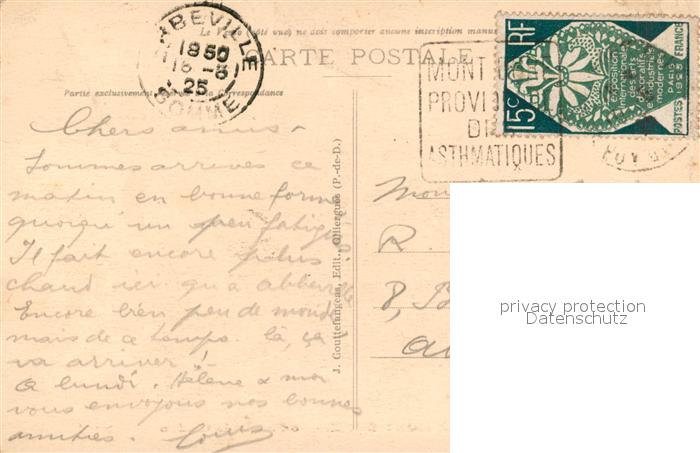 Le Verso (côté vue) ne doit comporter aucune inscription manus
CARTE POSTALE
Partie exclusivement de la Correspondance
BEVILLE
1850
18-8
25
SOMME
MONT
PROVI
DE
ASTHMATIQUES
RF
15c
Exposition
internationale
des arts
décoratifs
et industriels
modernes
PARIS
1925
POSTES FRANCE
Chers amis -
Sommes arrivés ce
matin en bonne forme
quoiqu'un peu fatigués
Il fait encore plus
chaud ici qu'a abbeville
Encore bien peu de monde
mais de ce temps là, ça
va arriver !
A lundi. Hélène & moi
vous envoyons nos bonnes
amitiés. Louis
J. Gouttefangeas, Edit., Olliergues (P.-de-D.)
R
8,
privacy protection
Datenschutz